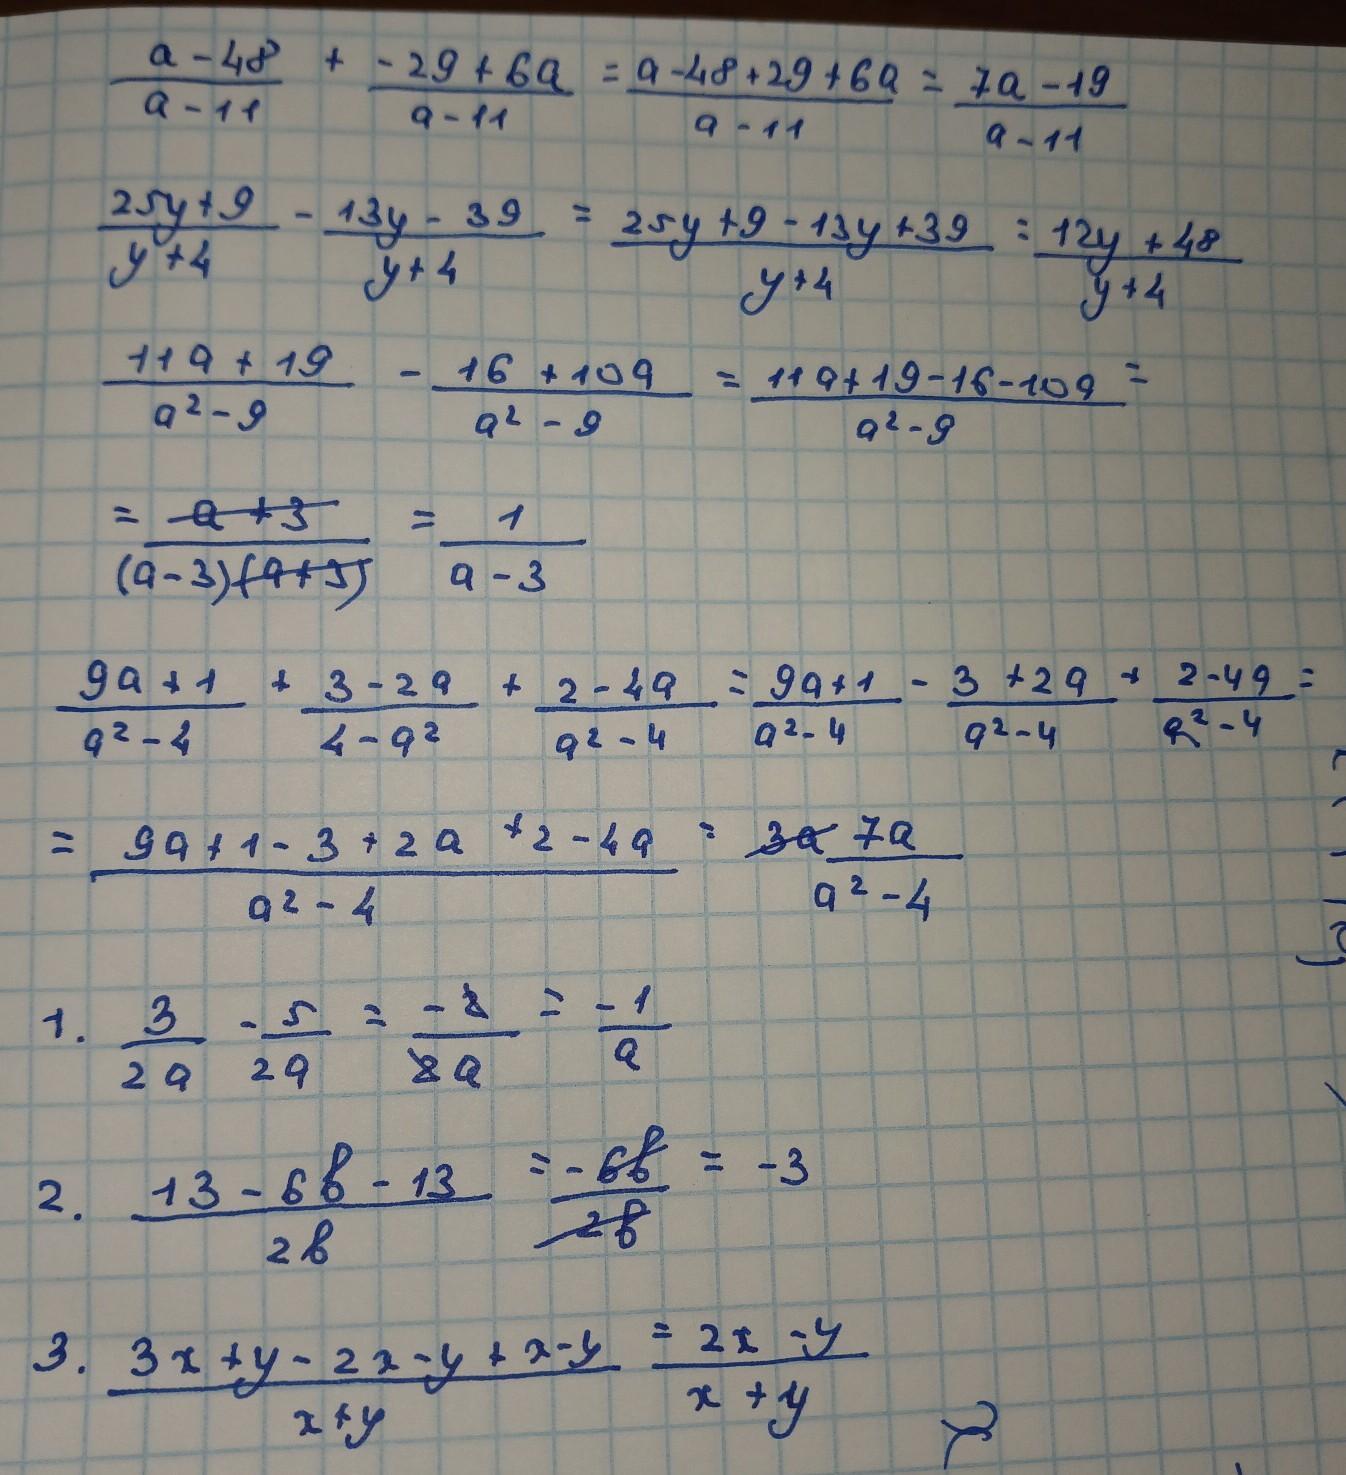 (a-48)/(a-11) + (-29+6a)/(a-11) = (a-48+29+6a)/(a-11) = (7a-19)/(a-11)
(25y+9)/(y+4) - (13y-39)/(y+4) = (25y+9-13y+39)/(y+4) = (12y+48)/(y+4)
(11a+19)/(a²-9) - (16+10a)/(a²-9) = (11a+19-16-10a)/(a²-9) =
= (a+3)/((a-3)(a+3)) = 1/(a-3)
(9a+1)/(a²-4) + (3-2a)/(4-a²) + (2-4a)/(a²-4) = (9a+1)/(a²-4) - (3+2a)/(a²-4) + (2-4a)/(a²-4) =
= (9a+1-3+2a+2-4a)/(a²-4) = 3a 7a/(a²-4)
1. 3/(2a) - 5/(2a) = -2/(2a) = -1/a
2. (13-6b-13)/(2b) = -6b/(2b) = -3
3. (3x+y-2x-y+x-y)/(x+y) = (2x-y)/(x+y)